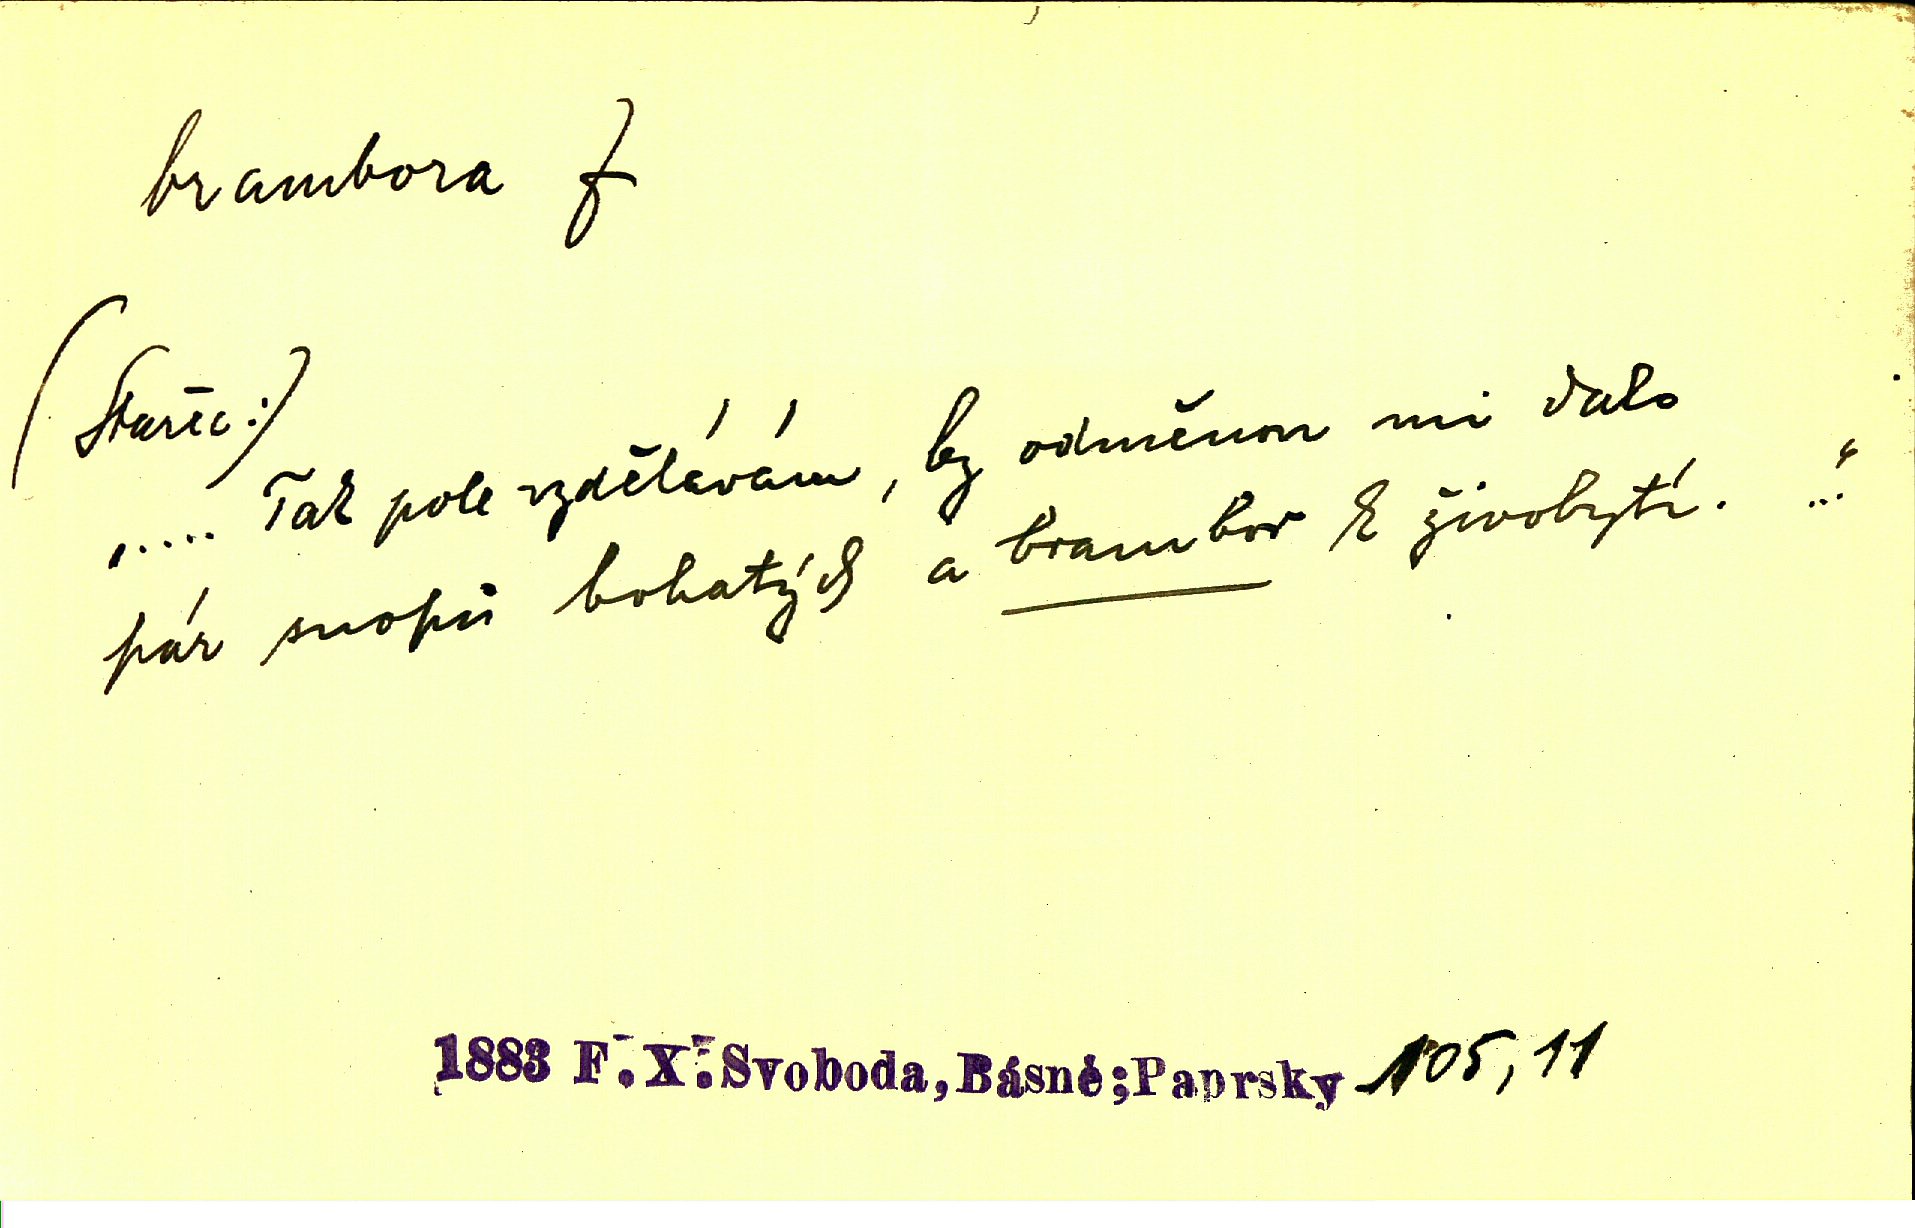 brambora f
(Stařec:)
„.... Tak pole vzdělávám, by odměnou mi dalo
pár snopů bohatých a brambor k živobytí. ..."
1883 F.X.Svoboda,Básně;Paprsky 105,11